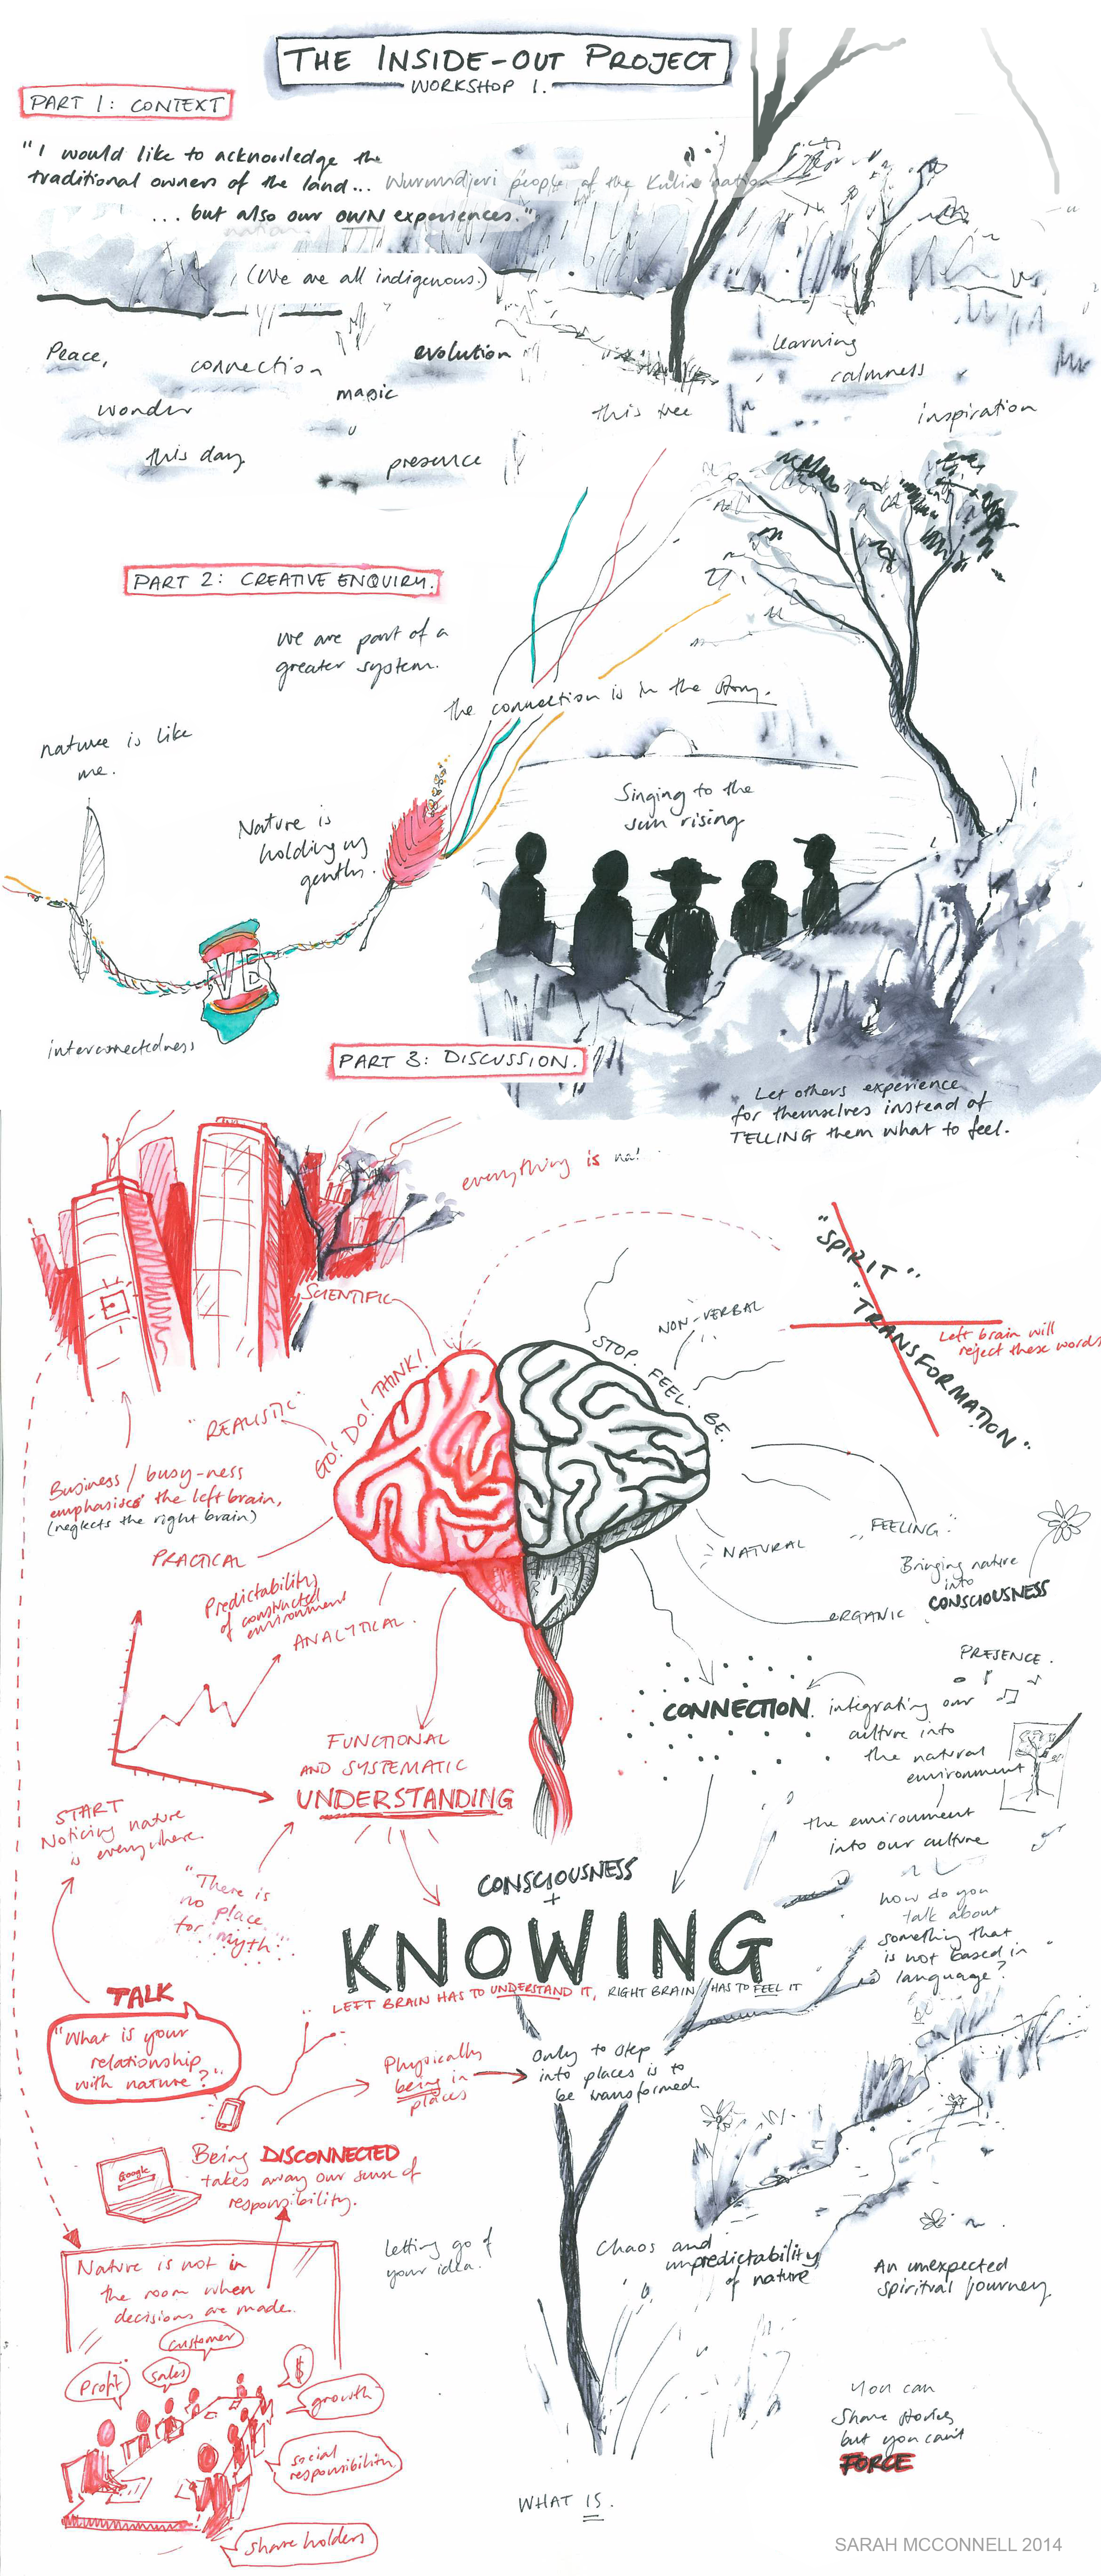 THE INSIDE-OUT PROJECT
WORKSHOP 1.
PART 1: CONTEXT
"I would like to acknowledge the
traditional owners of the land... Wurundjeri people of the Kulin nation
... but also our OWN experiences."
(We are all indigenous.)
Peace,
connection
evolution
learning
calmness
magic
wonder
this tree
inspiration
this day
presence
PART 2: CREATIVE ENQUIRY.
we are part of a
greater system.
the connection is in the story.
nature is like
me.
Singing to the
sun rising
Nature is
holding us
gently.
VB
interconnectedness
PART 3: DISCUSSION.
Let others experience
for themselves instead of
TELLING them what to feel.
everything is
"SPIRIT"
"TRANSFORMATION"
Left brain will
reject these words
SCIENTIFIC
NON-VERBAL
STOP. FEEL. BE.
GO! DO! THINK!
"REALISTIC"
Business / busy-ness
emphasises the left brain,
(neglects the right brain)
"FEELING"
NATURAL
PRACTICAL
Bringing nature
into
CONSCIOUSNESS
Predictability
of constructed
environment
ORGANIC
ANALYTICAL.
PRESENCE.
CONNECTION.
integrating our
culture into
the natural
environment
FUNCTIONAL
AND SYSTEMATIC
UNDERSTANDING
START
Noticing nature
is everywhere.
the environment
into our culture
"There is
no place
for myth."
CONSCIOUSNESS
+
KNOWING
how do you
talk about
something that
is not based in
language?
LEFT BRAIN HAS TO UNDERSTAND IT, RIGHT BRAIN HAS TO FEEL IT
TALK
"What is your
relationship
with nature?"
Physically
being in
places
Only to step
into places is to
be transformed
Google
Being DISCONNECTED
takes away our sense of
responsibility.
letting go of
your idea.
Chaos and
unpredictability
of nature
An unexpected
spiritual journey
Nature is not in
the room when
decisions are made.
customer
Profit
sales
$
growth
social
responsibility
share holders
You can
share stories
but you can't
FORCE
WHAT IS.
SARAH MCCONNELL 2014